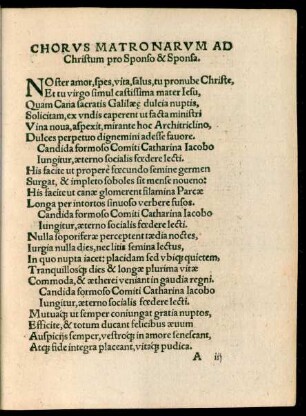 CHORVS MATRONARVM AD
Christum pro Sponso & Sponsa.
NOster amor, spes, vita, salus, tu pronube Christe,
Et tu virgo simul castissima mater Iesu,
Quam Cana sacratis Galilææ dulcia nuptis,
Solicitam, ex vndis caperent ut facta ministri
Vina noua, aspexit, mirante hoc Architriclino,
Dulces perpetuo dignemini adesse fauore.
Candida formoso Comiti Catharina Iacobo
Iungitur, æterno socialis fœdere lecti.
His facite ut properè fœcundo semine germen
Surgat, & impleto soboles sit mense noueno:
His facite ut canæ glomerent filamina Parcæ
Longa per intortos sinuoso verbere fusos.
Candida formoso Comiti Catharina Iacobo
Iungitur, æterno socialis fœdere lecti.
Nulla soporiferæ perceptent tædia noctes,
Iurgia nulla dies, nec litis semina lectus,
In quo nupta iacet: placidam sed vbiqȝ quietem,
Tranquillosqȝ dies & longæ plurima vitæ
Commoda, & ætherei veniant in gaudia regni.
Candida formoso Comiti Catharina Iacobo
Iungitur, æterno socialis fœdere lecti.
Mutuaqȝ ut semper coniungat gratia nuptos,
Efficite, & totum ducant felicibus æuum
Auspicijs semper, vestroqȝ in amore senescant,
Atqȝ fide integra placeant, vitaqȝ pudica.
A iij